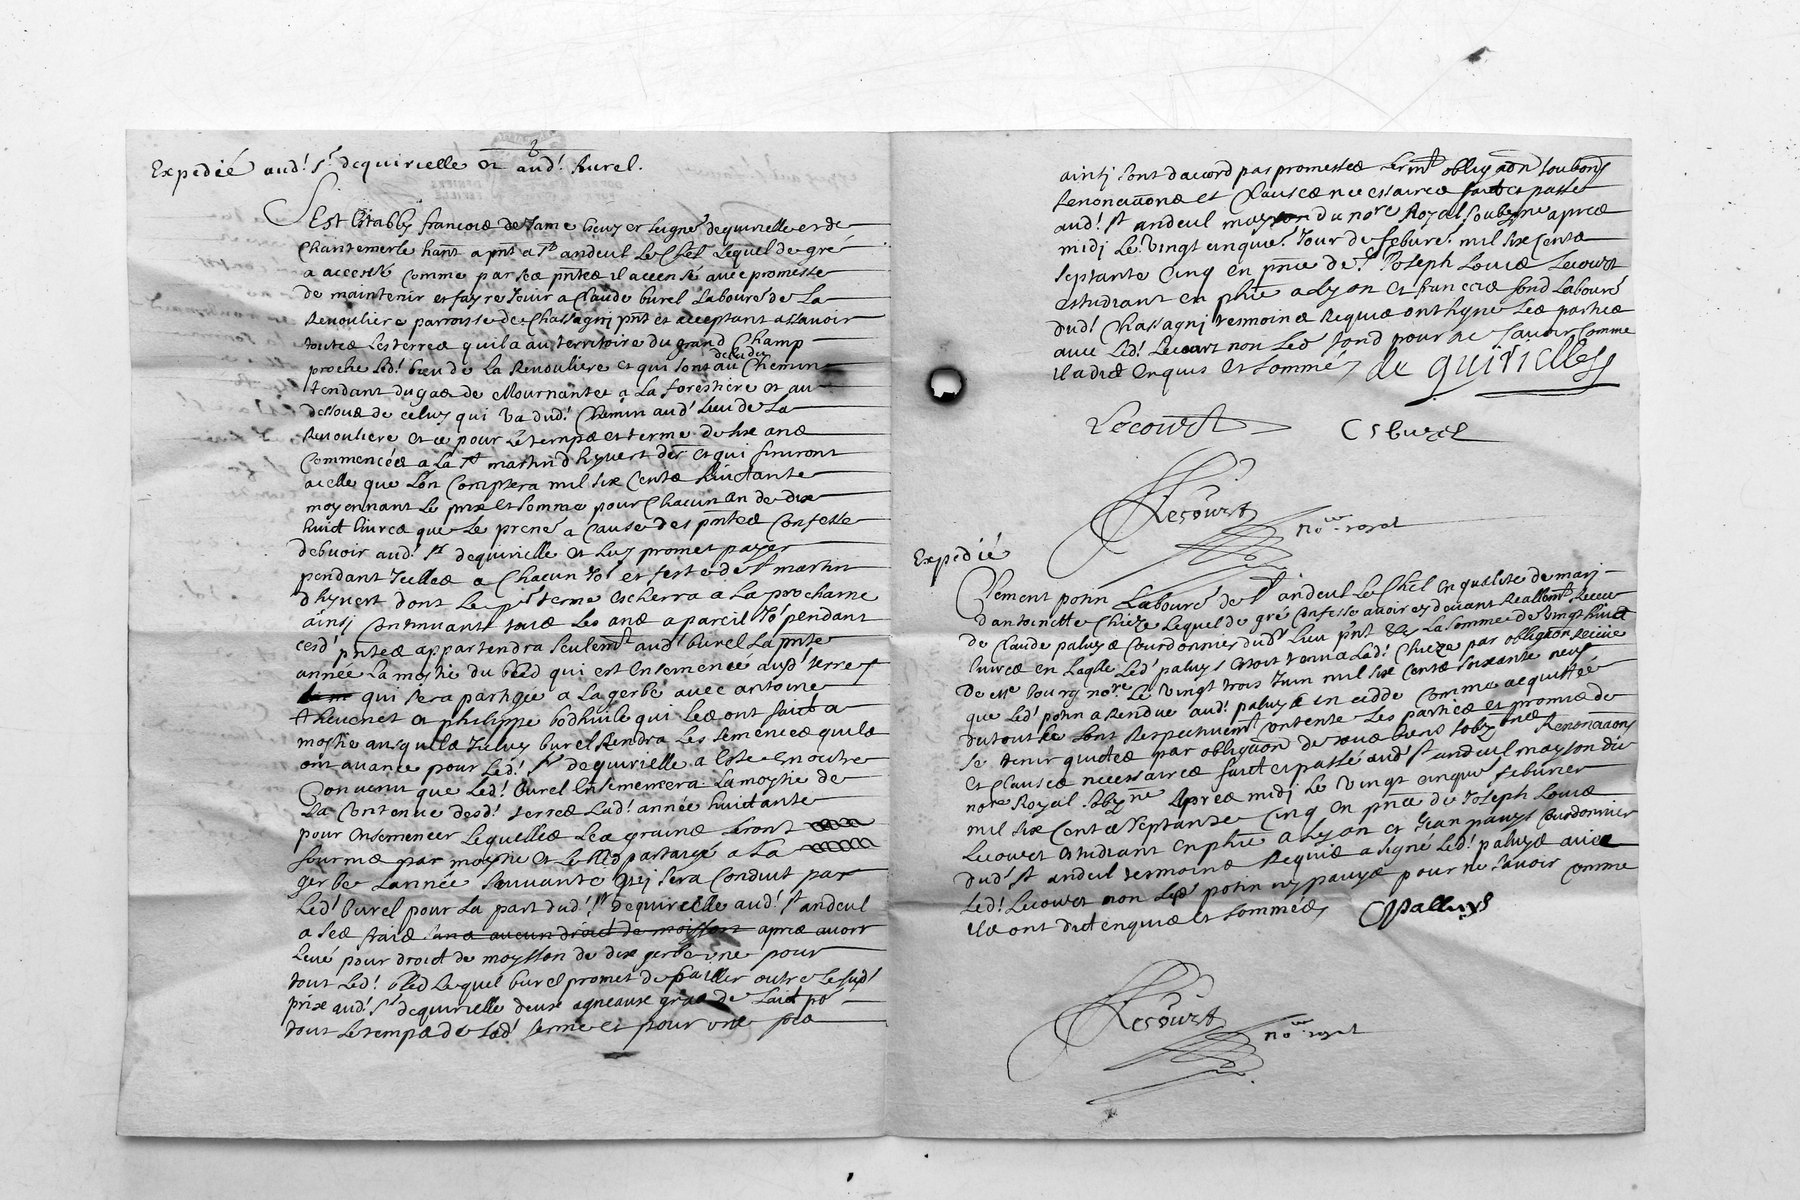 Expedié aud! Sr dequirielle et aud! Burel.
S'Est Estably francois de Jame Escuyer seigne' dequirielle et de
Chantemerle hant a pnt a St andeul Le Ch̃el Lequel de gré
a accensé comme par ses pntes il accense avec promesse
de maintenir et fayre Jouir a Claude burel Labouré de La
Revouliere parroisse de Chassagni pnt et acceptant assavoir
toutes Les terres quil a au territoire du grand Champ
proche Led! lieu de La Revouliere et qui sont au dela du Chemin
tendant du gas de Mournantet a La forestiere et au
dessous de celuy qui va dud! Chemin aud! Lieu de La
Revouliere et ce pour Le temps et terme de six ans
Commencés a La St martin d'hyvert der' et qui finiront
a celle que Lon Comptera mil six Cents huictante
moyennant Le prix et somme pour Chacun an de dix
huict livres que Le prene' a Cause des pntes Confesse
debvoir aud! Sr dequirielle et Luy promet payer
pendant Icelles a Chacun Jo' et feste de St martin
d'hyvert dont Le pr terme escherra a La prochaine
ainsi Continuant tous Les ans a pareil Jo' pendant
cesd! pntes appartendra seulemt aud! burel La pnte
année La moytie du bled qui est Ensemencé ausd! terres
qui sera partagée a La gerbe avec antoine
theuenet et philippe bodhuile qui Les ont faict a
moytie ausquels Iceluy burel Rendra Les semences quils
ont avance pour Led! Sr dequirielle a este En outre
Convenu que Led! Burel Ensemensera La moytie de
La Contenue desd! terres Lad! année huictante
pour Ensemencer Lesquelles Les grains seront
fournis par moytie et Le bled partagé a La
gerbe L'année suivante qui sera Conduit par
Led! burel pour La part dud! Sr dequirielle aud! St andeul
a ses frais sans aucun droict de moisson apres avoir
Levé pour droict de moysson de dix gerbes une pour
tout Led! bled Lequel burel promet de bailler outre Le susd!
prix aud! Sr dequirielle deux agneaux gras de Laict po'
tout Le temps de Lad! ferme et pour une fois
ainsi sont d'accord par promesses sermt obligaõn soubzons
Renonciaõns et Clauses necessaires faict et passé
aud! St andeul mayson du nore Royal soubzne apres
midi Le vingt cinquie' Jour de febure' mil six cents
septante Cinq En pnce de Sr Joseph Louis Lecourt
estudiant en phie a Lyon et francois fond Labouré
dud! Chassagni tesmoins Requis ont signe Les parties
avec Led! Lecourt non Led! fond pour ne scavoir Comme
il a dict Enquis et sommé
de quirielle
Lecourt
C s burel
Lecourt
no.re royal
Expedié
Clement potin Labouré de St andeul Le Ch̃el En qualité de mari
d'antoinette Chieze Lequel de gré Confesse avoir cy devant Reallemt Receu
de Claude paluys Courdonnier dud! Lieu pnt La somme de vingt huict
livres en Laqlle Led! paluys estoit tenu a Lad! Chieze par obligaõn Receue
de me bourg nore Le vingt trois Juin mil six Cents soixante neuf
que Led! potin a Rendue aud! paluys Comme acquittée
du tout se sont Respectivemt Contente Les parties et promis de
se tenir quictes par obligaõn de tous biens sobzons Renonciaons
et Clauses necessaires faict et passé aud! St andeul mayson du
nore Royal sobzne Apres midi Le vingt cinquie' febvrier
mil six Cents septante Cinq En pnce de Joseph Louis
Lecourt estudiant En phie a Lyon et Jean pauys Courdonnier
dud! St andeul tesmoins Requis a signé Led! paluys avec
Led! Lecourt non Lesd! potin ny pauys pour ne scavoir Comme
ils ont dict enquis et sommés
C Palluys
Lecourt
no.re royal